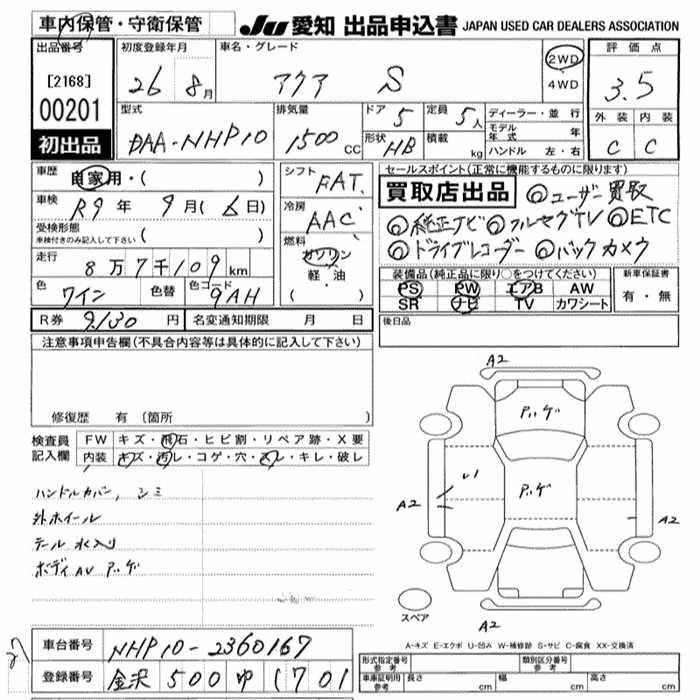 車内保管・守衛保管
JU 愛知 出品申込書 JAPAN USED CAR DEALERS ASSOCIATION
出品番号
[2168]
00201
初出品
初度登録年月
26年 8月
車名・グレード
アクア S
2WD
・
4WD
評価点
3.5
外装 内装
C C
型式
DAA-NHP10
排気量
1500 CC
ドア 5
定員 5人
形状 HB
積載 kg
ディーラー・並行
モデル年式 年
ハンドル 左・右
車歴
自家用・( )
車検
R9年 9月(6日)
受検形態
車検付きのみ記入して下さい ( )
走行
8万7千109km
色 ワイン
色替
色コード 9AH
シフト
FAT
冷房
AAC
燃料
ガソリン
軽・油
( )
セールスポイント(正常に機能するものに限ります)
買取店出品 ◎ユーザー買取
◎純正ナビ ◎フルセグTV ◎ETC
◎ドライブレコーダー ◎バックカメラ
装備品(純正品に限り○をつけてください)
PS PW エアB AW
SR ナビ TV カワシート
新車保証書
有・無
R券 9,130円
名変通知期限 月 日
後日品
注意事項申告欄(不具合内容等は具体的に記入して下さい)
修復歴 有 (箇所 )
検査員記入欄
FW キズ・飛石・ヒビ割・リペア跡・X要
内装 キズ・汚レ・コゲ・穴・スレ・キレ・破レ
ハンドルカバン, シミ
外ホイール
テール水入り
ボディAV アゲ
A2
アゲ
アゲ
A2
A2
A2
スペア
A-キズ E-エクボ U-凹み W-補修跡 S-サビ C-腐食 XX-交換済
車台番号
NHP10-2360167
登録番号
金沢 500 ゆ 1701
形式指定番号
参考
類別区分番号
参考
車庫証明用
参考
長さ cm 幅 cm 高さ cm